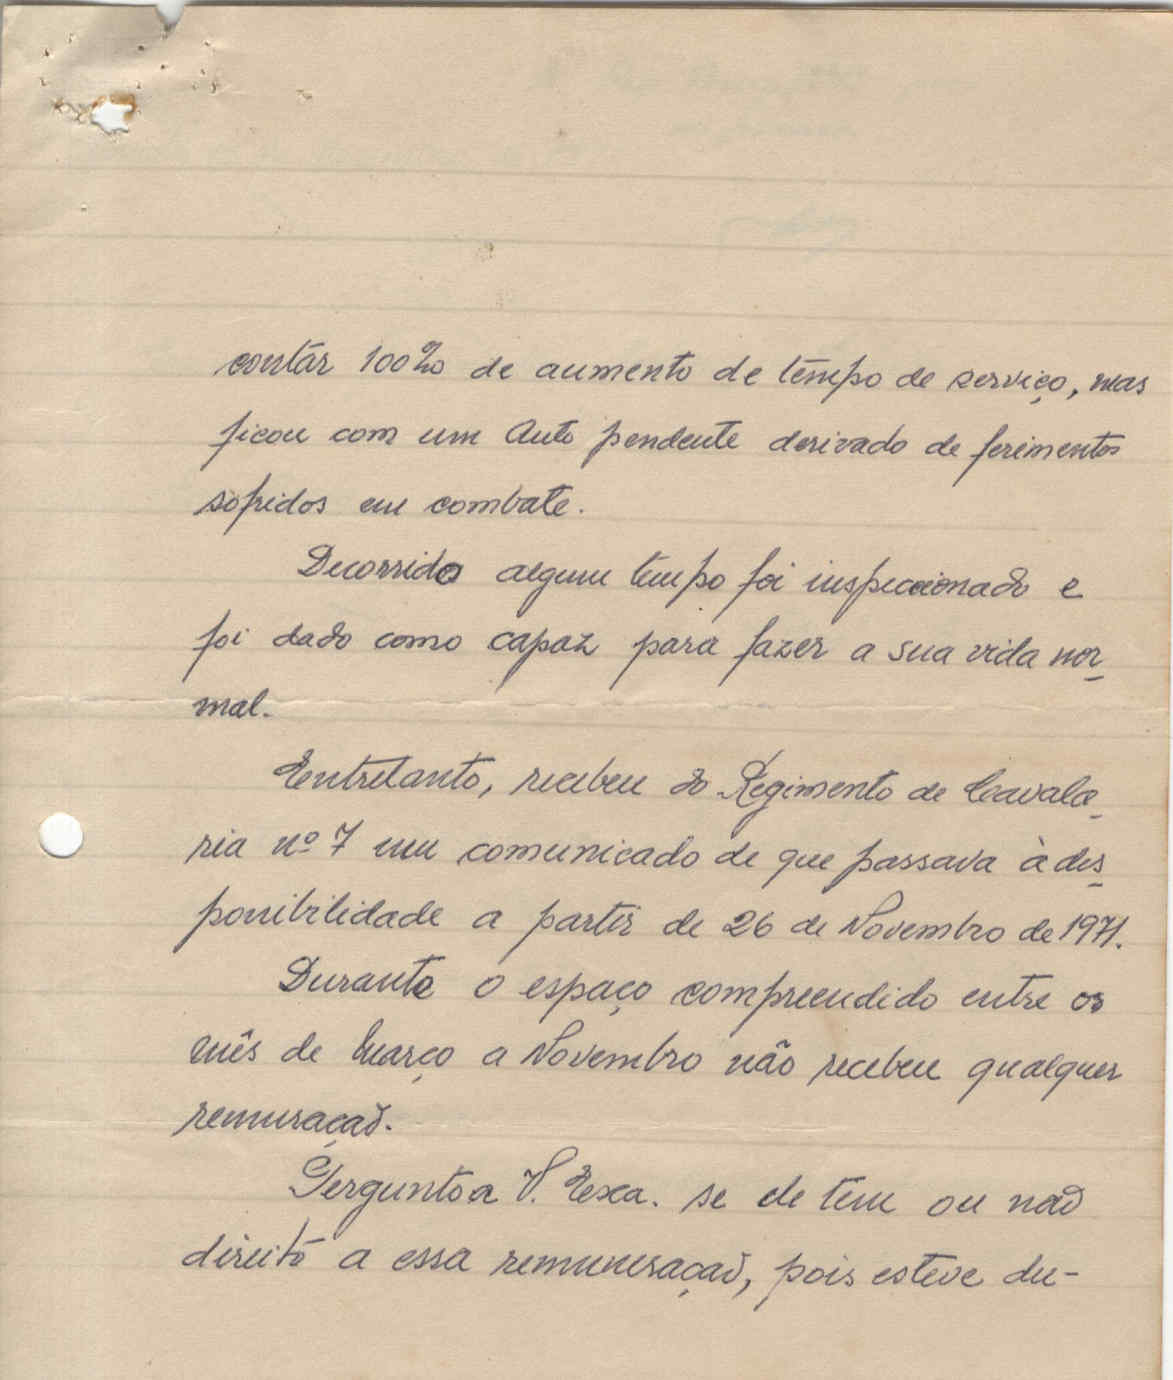 contar 100% de aumento de tempo de serviço, mas
ficou com um Auto pendente derivado de ferimentos
sofridos em combate.
Decorrido algum tempo foi inspeccionado e
foi dado como capaz para fazer a sua vida nor-
mal.
Entretanto, recebeu do Regimento de Cavala-
ria nº 7 um comunicado de que passava à dis-
ponibilidade a partir de 26 de Novembro de 1971.
Durante o espaço compreendido entre os
mês de Março a Novembro não recebeu qualquer
remuração.
Pergunto a V. Exa. se ele tem ou não
direito a essa remuneração, pois esteve du-